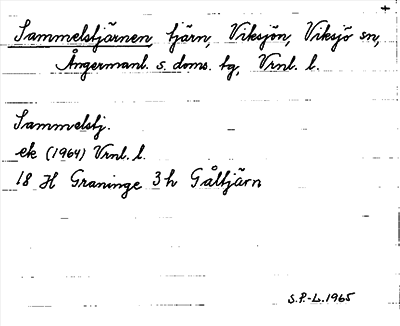 Sammelstjärnen, tjärn, Viksjön, Viksjö sn,
Ångermanl. s. doms. tg, Vrnl. l.
Sammelstj.
ek (1964) Vrnl. l.
18 H Graninge 3 h Gåltjärn
S.P.-L. 1965